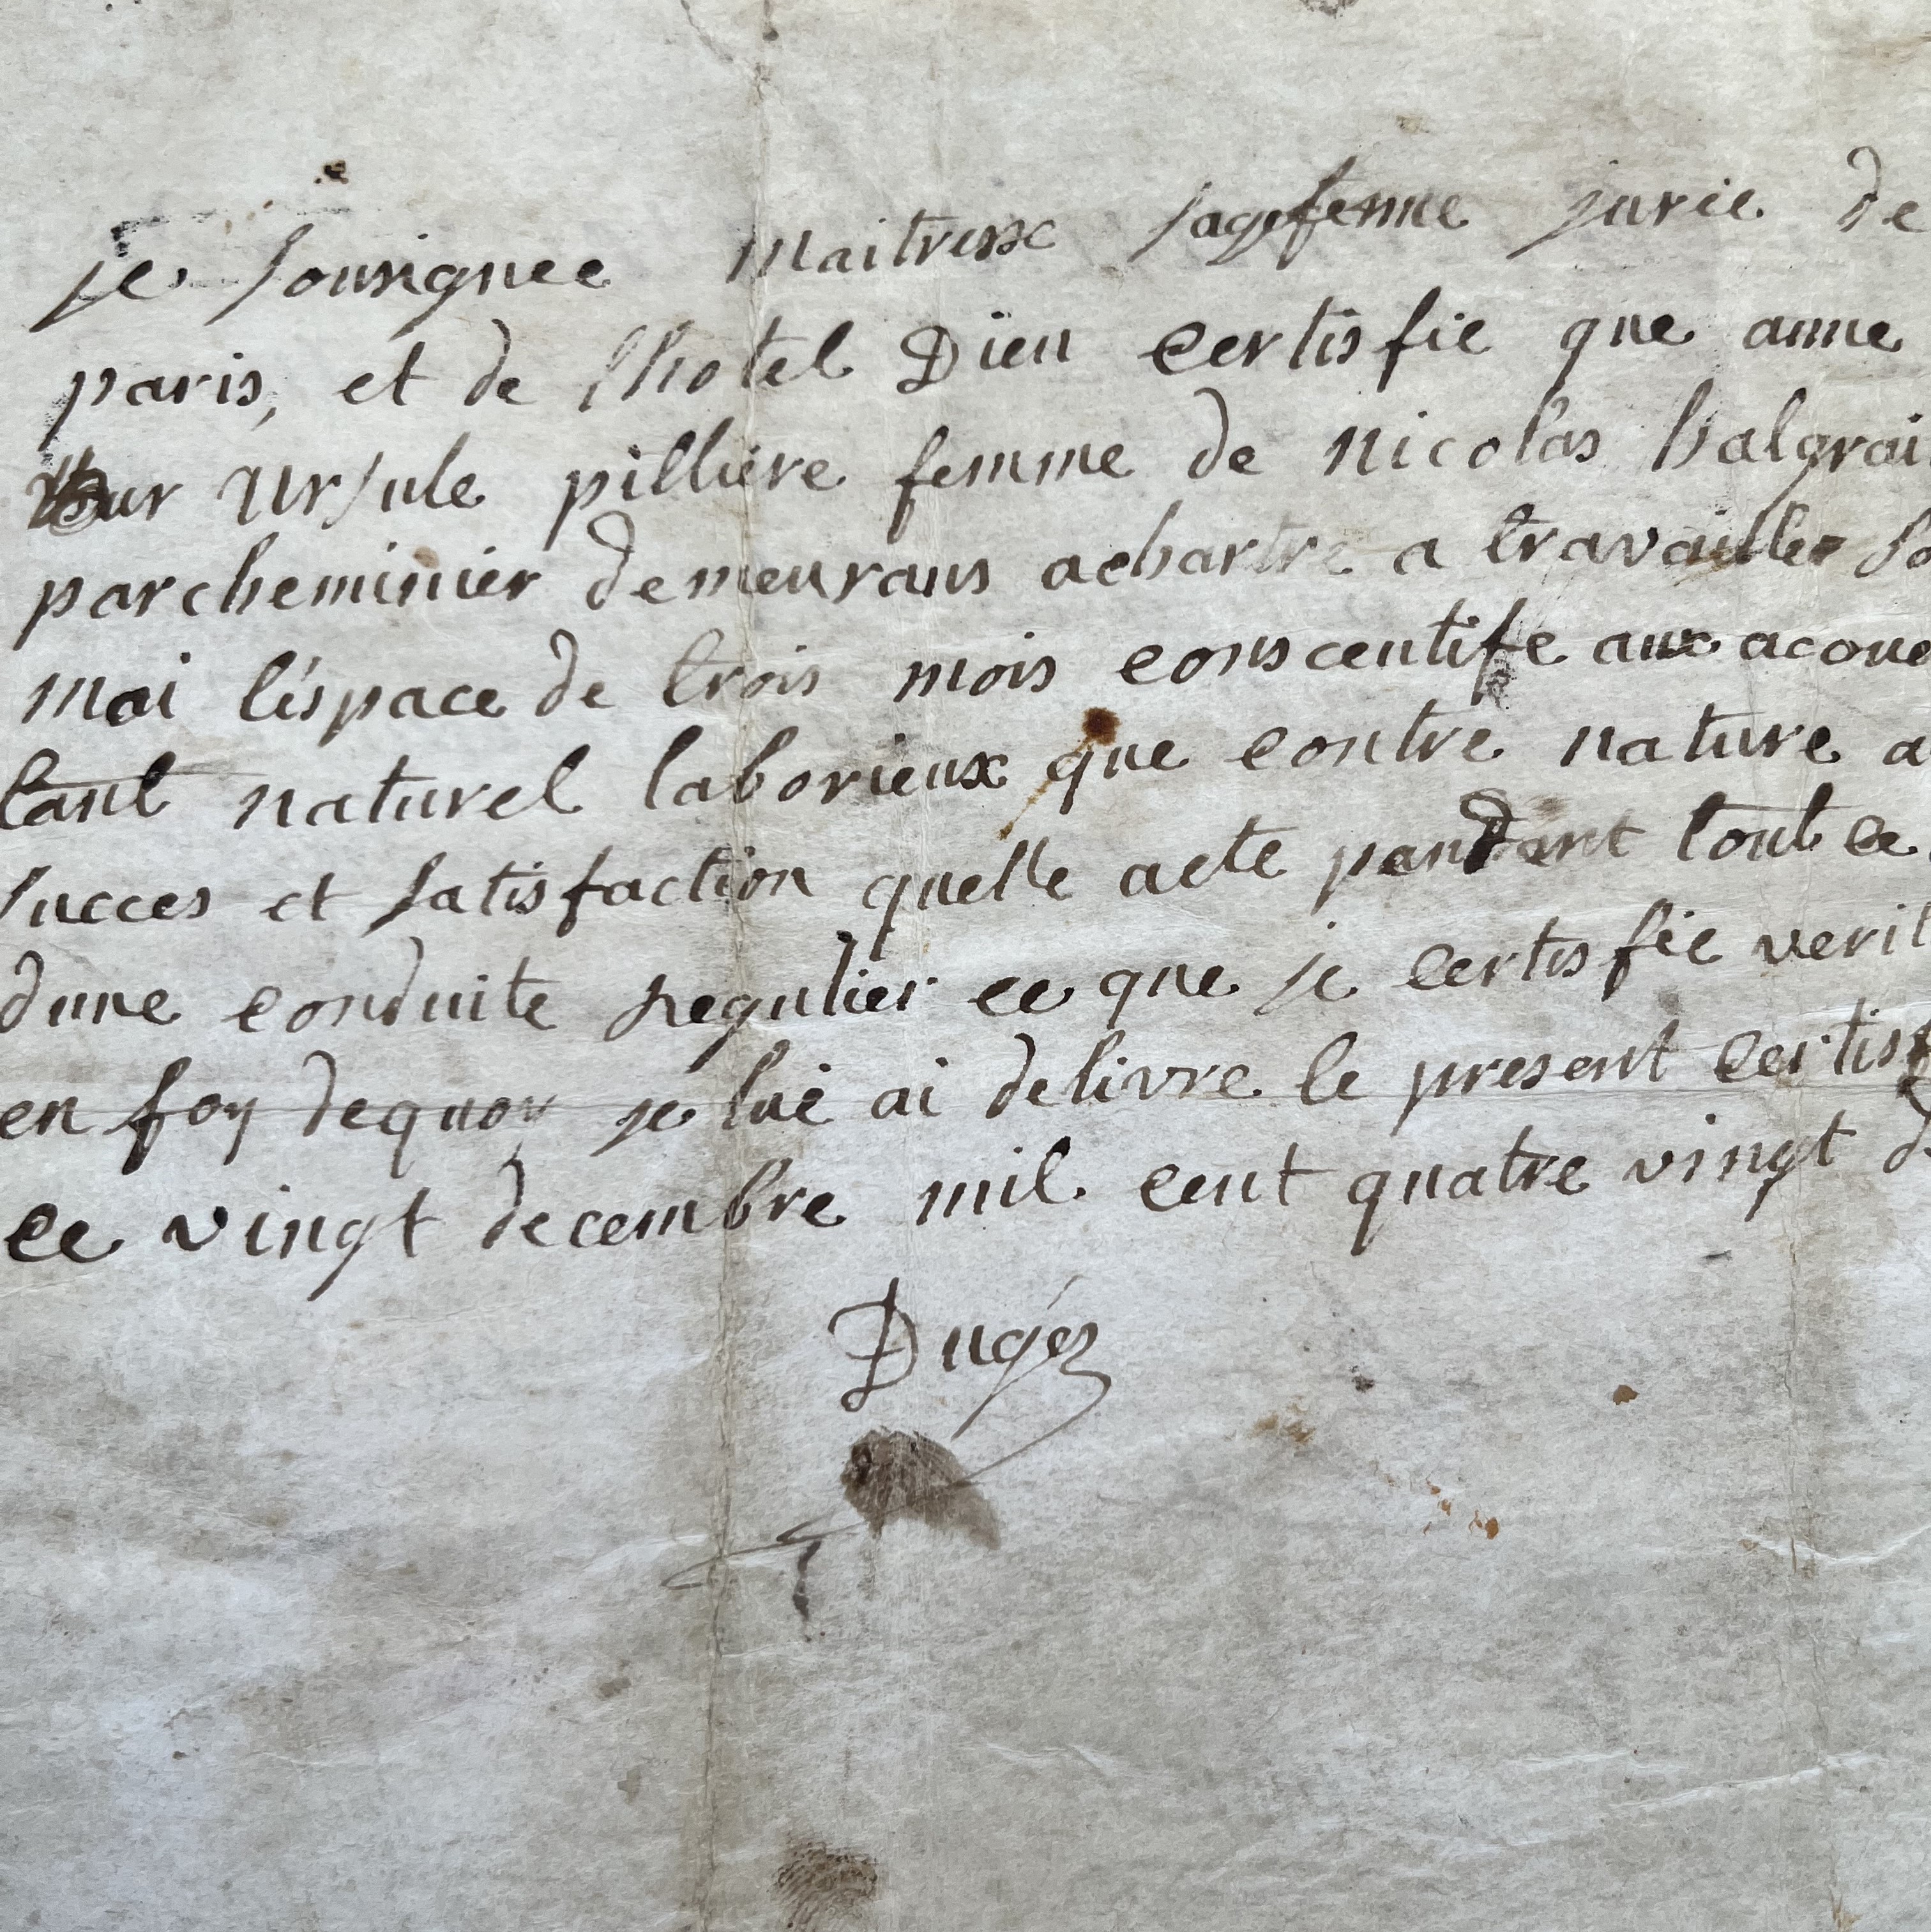 je sousignee maitresse sagefemme jurie de
paris, et de lhotel Dieu certisfie que anne
ursule pilliere femme de nicolas balgrai
parcheminier demeurans achartre a travailler so
moi léspace de trois mois conscentife aux acouc
tant naturel laborieux que contre nature a
succes et satisfaction quelle acte pandant tout ce
dune conduite regulier ce que je certisfie verit
en foy dequoy je lui ai delivre le present certisf
ce vingt decembre mil cent quatre vingt d
Dugés